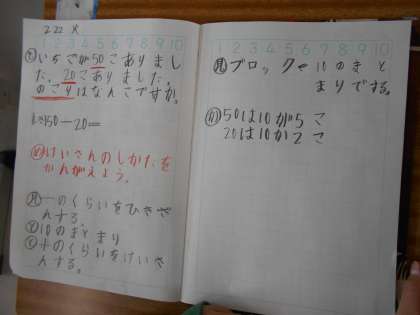 2.22 火
1 2 3 4 5 6 7 8 9 10
も いちごが50こありまし
た。20こありました。
のこりはなんこですか。
しき50-20=
め けいさんのしかたを
かんがえよう。
見 一のくらいをひきざ
んする。
と 10のまとまり
と 十のくらいをけいさ
んする。
1 2 3 4 5 6 7 8 9 10
見 ブロックや10のまと
まりでする。
か 50は10が5こ
20は10が2こ